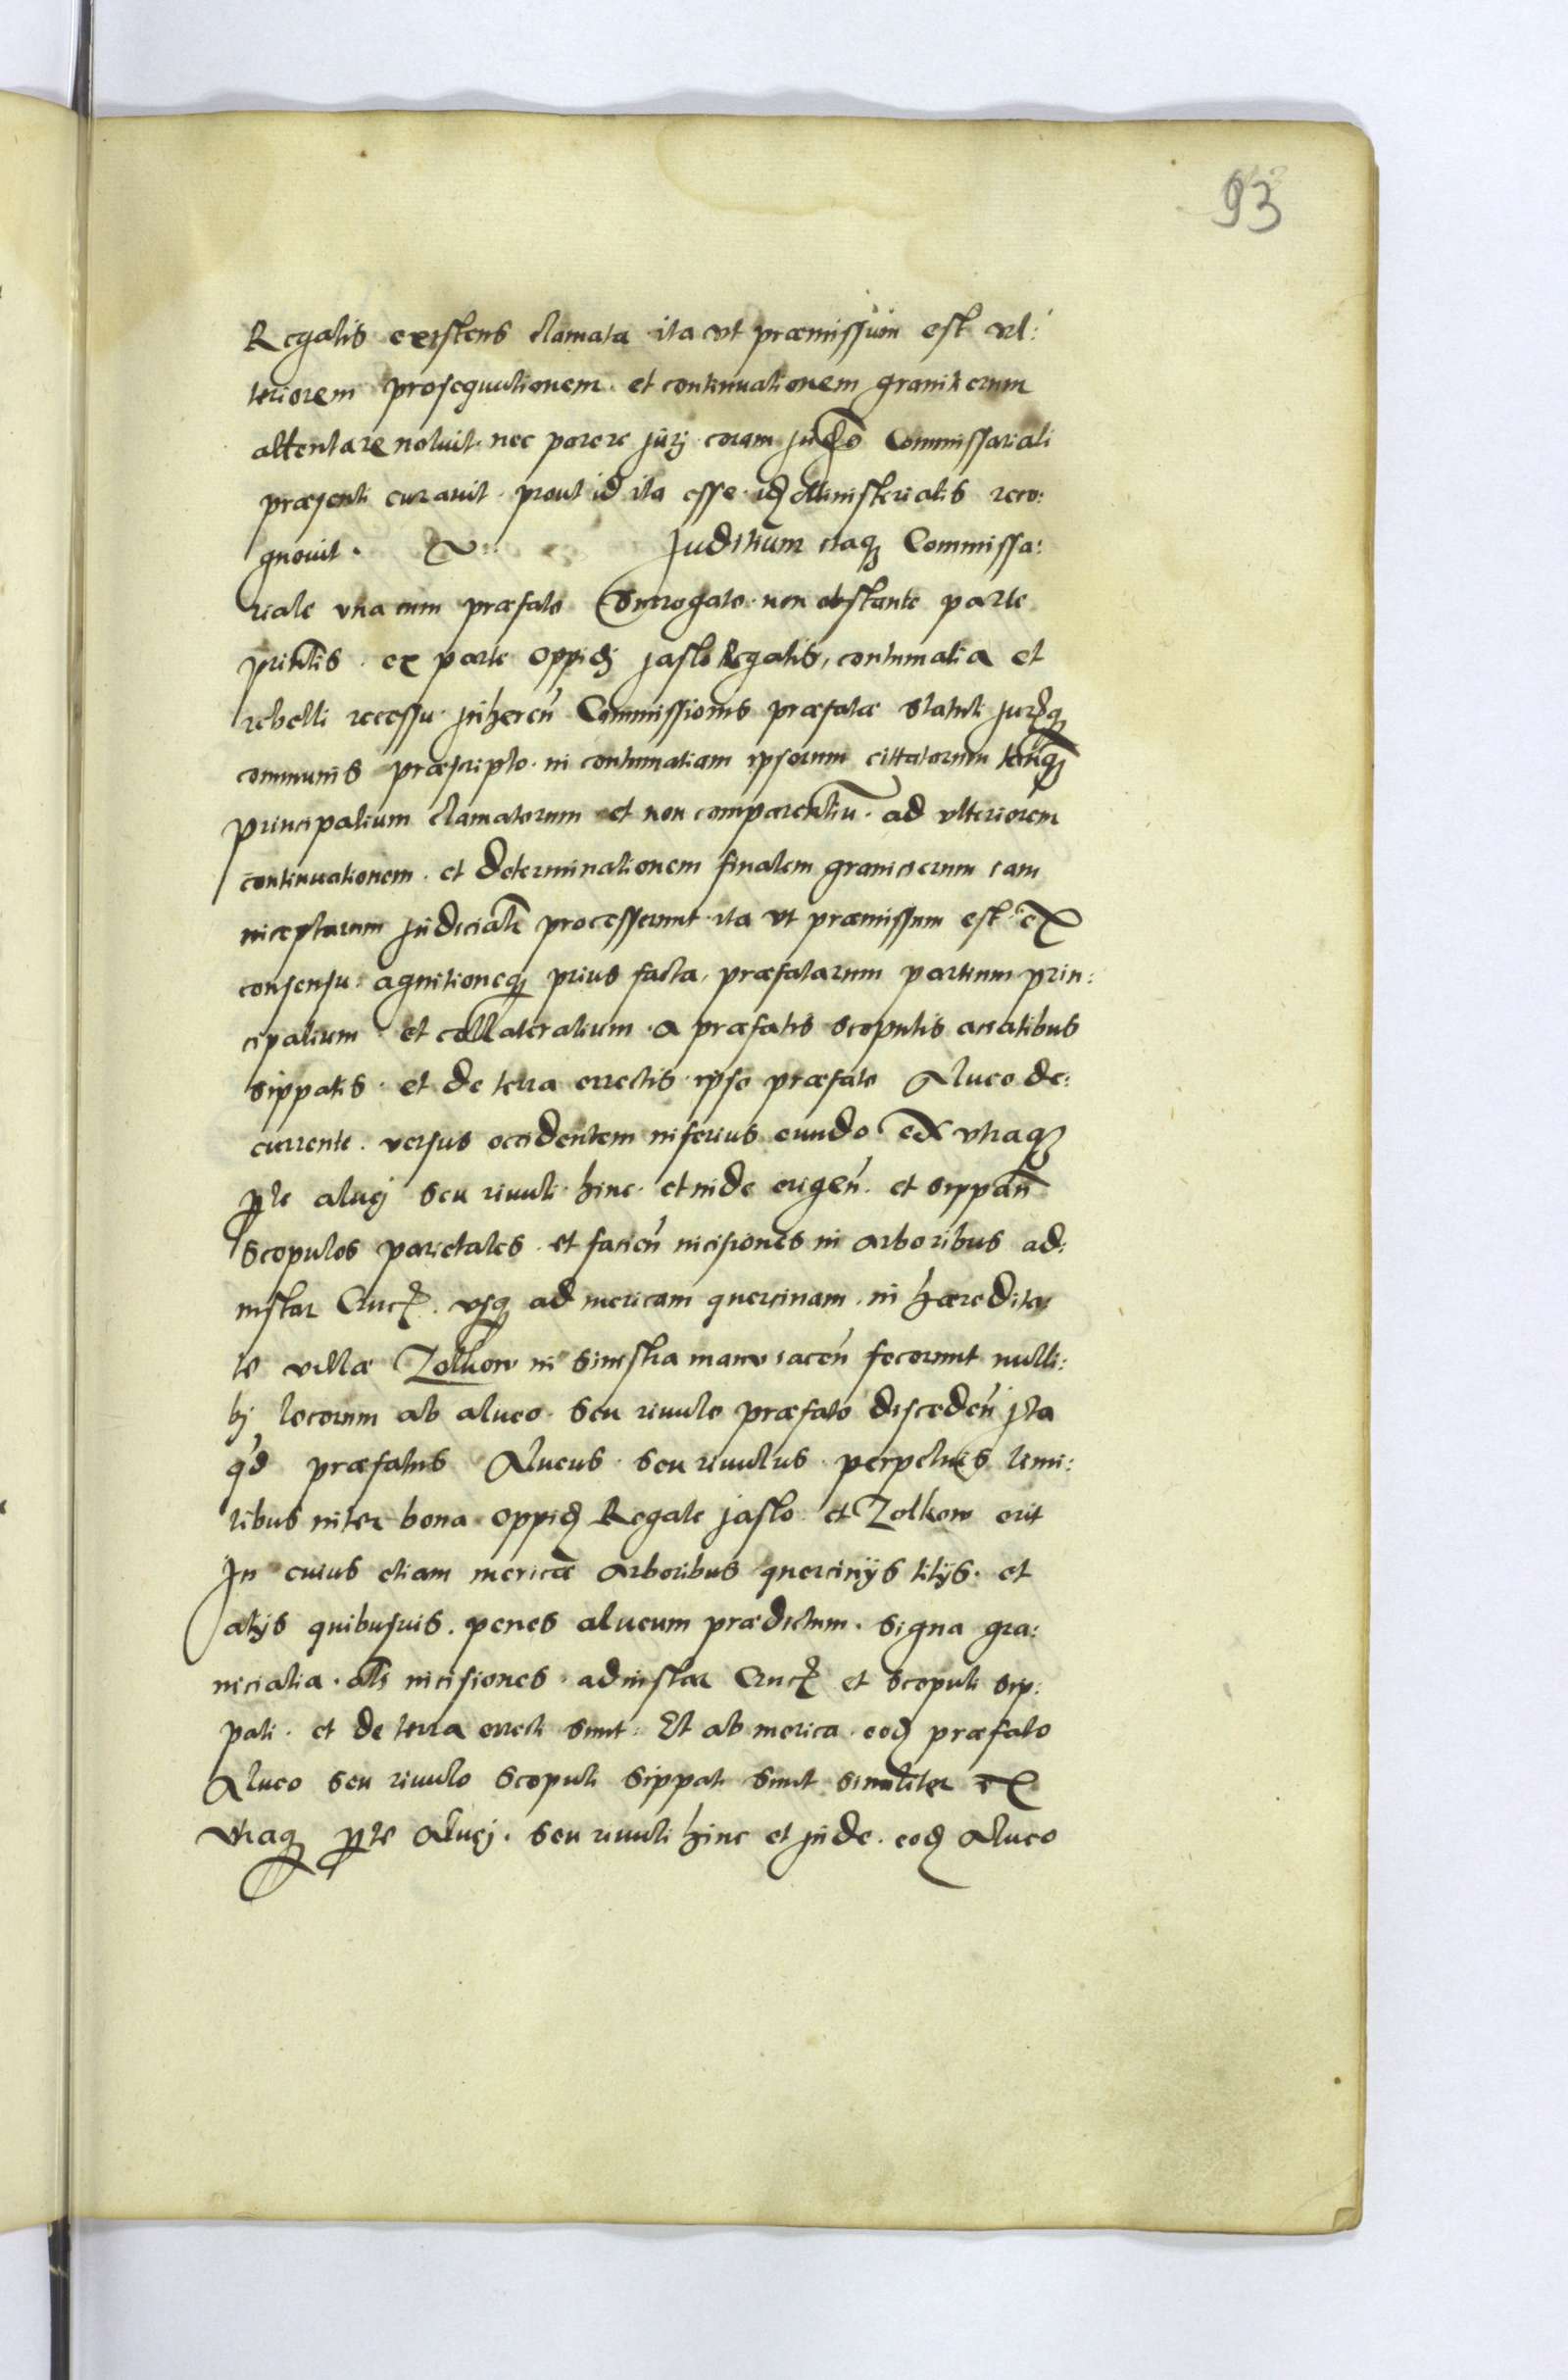 93
Regalis existens clamata ita vt præmissum est vl:
teriorem prosequutionem et continuationem granicierum
attentare noluit nec parere jurj coram judo Commissariali
præsenti curauit prout id ita esse idem Ministerialis reco:
gnouit. Juditium itaq Commissa:
riale vna cum præfato Surrogato non obstante parte
ex parte oppidj jaslo Regalis, contumatia et
rebelli recessu jnheren Commissionis præfatæ statuti jurisq
communis præscripto in contumatiam ipsorum cittatorum tanq
principalium clamatorum et non comparentiu ad vlteriorem
continuationem et determinationem finalem granicierum iam
inceptarum judicialr processerunt ita vt præmissum est ex
consensu agnitioneq prius facta præfatarum partium prin:
cipalium et collateralium a præfatis scopulis acialibus
sippatis et de terra errectis ipso præfato Alueo de:
currente versus occidentem inferius eundo ex vtraq
pte aluej seu riuuli hinc et inde erigen et sippan
scopulos parietales et facien incisiones in arboribus ad:
instar Crucis vsq ad mericam quercinam in hæredita:
te villæ Zolkow in sinistra manu iacen fecerunt nulli:
bj locorum ab alueo seu riuulo præfato disceden jta
qd præfatus Alueus seu riuulus perpetuis limi:
tibus inter bona oppid Regale jaslo et Zolkow erit
Jn cuius etiam mericæ arboribus quercinijs tilijs et
alijs quibusuis penes alueum prædictum signa gra:
nicialia als incisiones adinstar Crucis et scopuli sip:
pati et de terra errecti sunt Et ab merica eod præfato
Alueo seu riuulo scopuli sippati sunt similiter ex
vtraq pte Aluej seu riuuli hinc et jnde eod Alueo